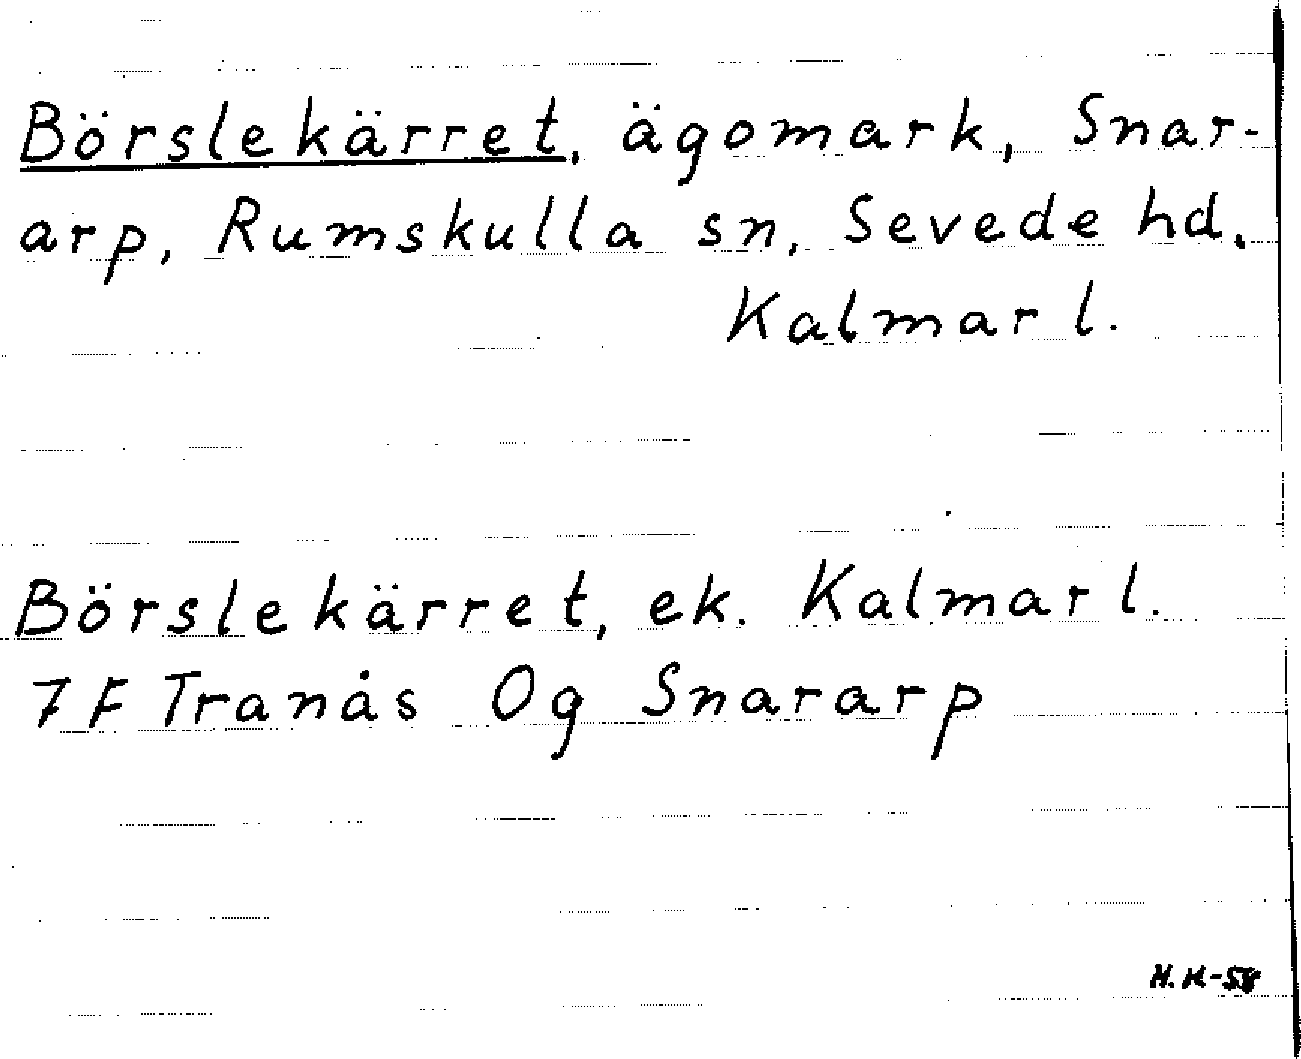 Börslekärret, ägomark, Snar-
arp, Rumskulla sn, Sevede hd.
Kalmar l.
Börslekärret, ek. Kalmar l.
7 F Tranås Og Snararp
H.H-58